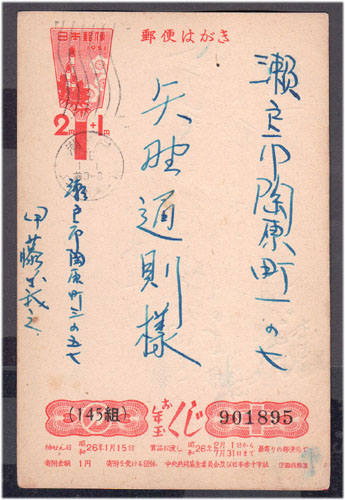 日本郵便
1951
2円+1円
郵便はがき
瀬戸市陶原町一の七
矢野通則様
瀬戸市陶原町三の五七
伊藤
お年玉くじ
(145組)
901895
抽せん日 昭和26年1月15日
賞品お渡し 昭和26年2月1日から7月31日まで
最寄りの郵便局で
寄附金額 1円
寄附を受ける団体 中央共同募金委員会及び日本赤十字社